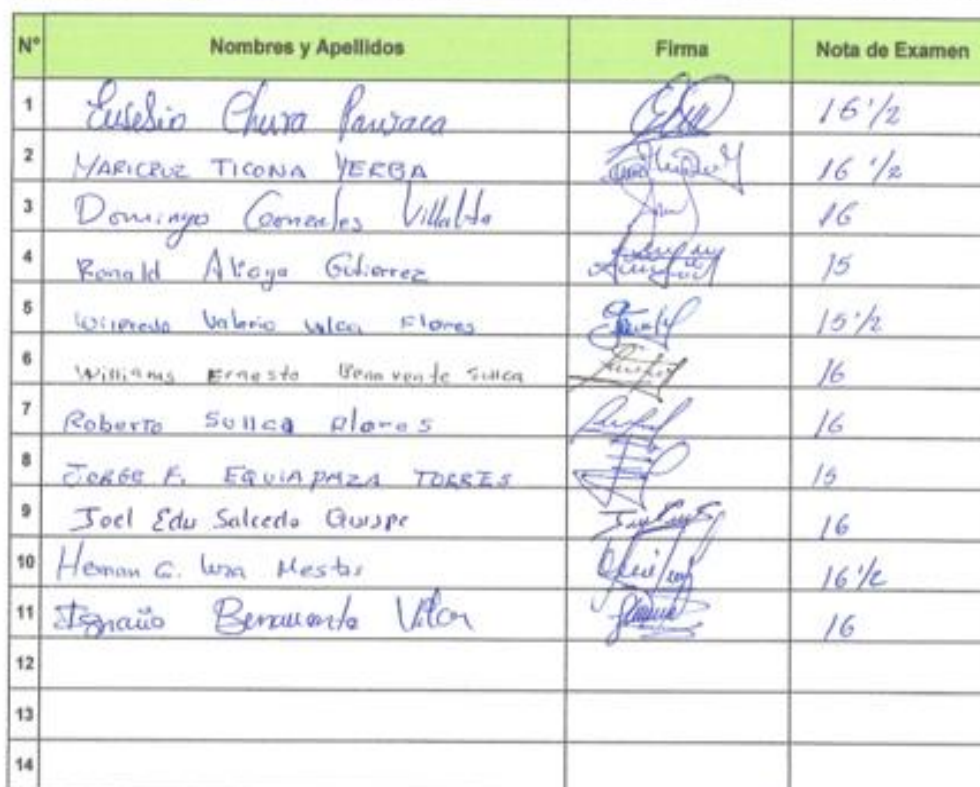 N° Nombres y Apellidos Firma Nota de Examen
1 Eusebio Chura 16 1/2
2 MARICRUZ TICONA YERBA 16 1/2
3 Domingo Gonzales Villalta 16
4 Ronald Aliaga Gutierrez 15
5 Wilfredo Valerio Vilca Flores 15 1/2
6 Williams Ernesto Benavente Sullca 16
7 Roberto Sullca Flores 16
8 JORGE F. EQUIAPAZA TORRES 15
9 Joel Edu Salcedo Quispe 16
10 Hernan G. Mestas 16 1/2
11 Ignacio Benavente Vilca 16
12
13
14